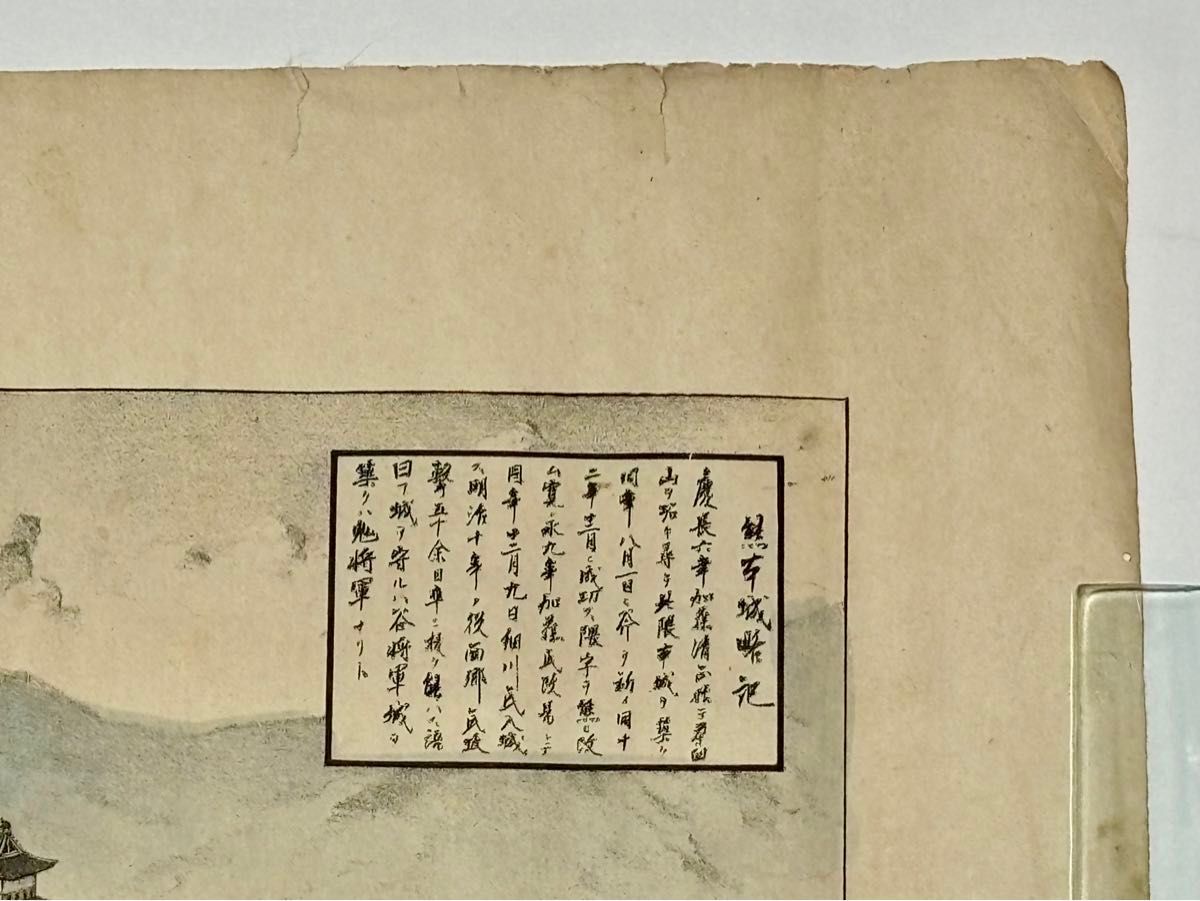 熊本城略記
慶長六年加藤清正始テ茶臼
山ノ跡ヲ尋テ隈本城ヲ築ク
同年八月一日ヨリ斧ヲ新メ同十
二年
月ニ成功ス隈字ヲ熊ニ改
ム寛永九年加藤氏改易シテ
同年十二月九日細川氏入城
ス明治十年ノ役西郷氏攻
撃五十余日卒ニ援ク能ハス語
曰フ城ヲ守ルハ谷将軍城ヲ
築クハ鬼将軍ナリト